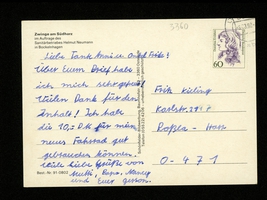 Zwinge am Südharz
im Auftrage des
Sanitätsbetriebes Helmut Neumann
in Bockelnhagen
3360
60
Liebe Tante Anni u. Onkel Fritz!
Über Euern Brief habe
ich mich sehr gefreut.
Vielen Dank für den
Inhalt! Ich hab
die 10,- DM für mein
neues Fahrrad gut
gebrauchen können.
Viele liebe Grüße von
Mutti, Papa, Mandy
und Euer
Best.-Nr. 91 0803
Fritz Kieling
Karlstr.
Roßla - Harz
O-4713